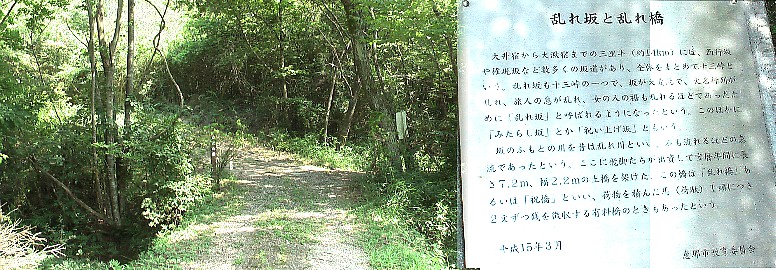 乱れ坂と乱れ橋
大井宿から大湫宿までの三里半(約14km)には、西行坂
や権現坂など数多くの坂道があり、全体をまとめて十三峠と
いう。乱れ坂も十三峠の一つで、坂が大変急で、大名行列が
乱れ、旅人の息が乱れ、女の人の裾も乱れるほどであったた
めに「乱れ坂」と呼ばれるようになったという。このほかに
「みだらし坂」とか「祝い上げ坂」ともいう。
坂のふもとの川を昔は乱れ川といい、石も流れるほどの急
流であったという。ここに飛脚たちが出資して宝暦年間に長
さ7.2m、幅2.2mの土橋を架けた。この橋は「乱れ橋」あ
るいは「祝橋」といい、荷物を積んだ馬(荷駄)1頭につき
2文ずつ銭を徴収する有料橋のときもあったという。
平成15年3月
恵那市教育委員会